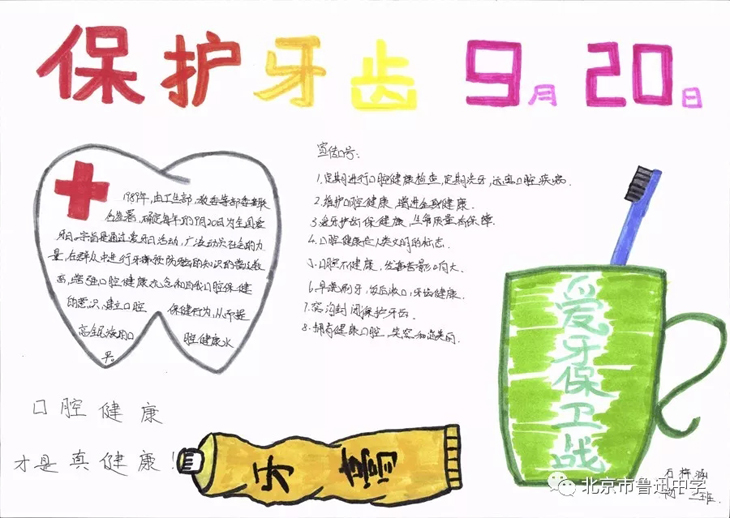 保护牙齿 9月20日
1989年,由卫生部、教委等部委联
合签署,确定每年的9月20日为全国爱
牙日。宗旨是通过爱牙日活动,广泛动员社会的力
量,在群众中进行牙病防治知识的普及教
育,增强口腔健康观念和自我口腔保健
的意识,建立口腔保健行为,从而提
高全民族的口腔健康水
平。
宣传口号:
1.定期进行口腔健康检查,定期洗牙,远离口腔疾病。
2.维护口腔健康,增进全身健康。
3.爱牙护齿保健康,生命质量有保障。
4.口腔健康是人类文明的标志。
5.口腔不健康,危害影响大。
6.早晚刷牙,饭后漱口,牙齿健康。
7.窝沟封闭保护牙齿。
8.拥有健康口腔,笑容和美丽。
口腔健康
才是真健康!
牙膏
爱牙保卫战
初一二班
北京市鲁迅中学